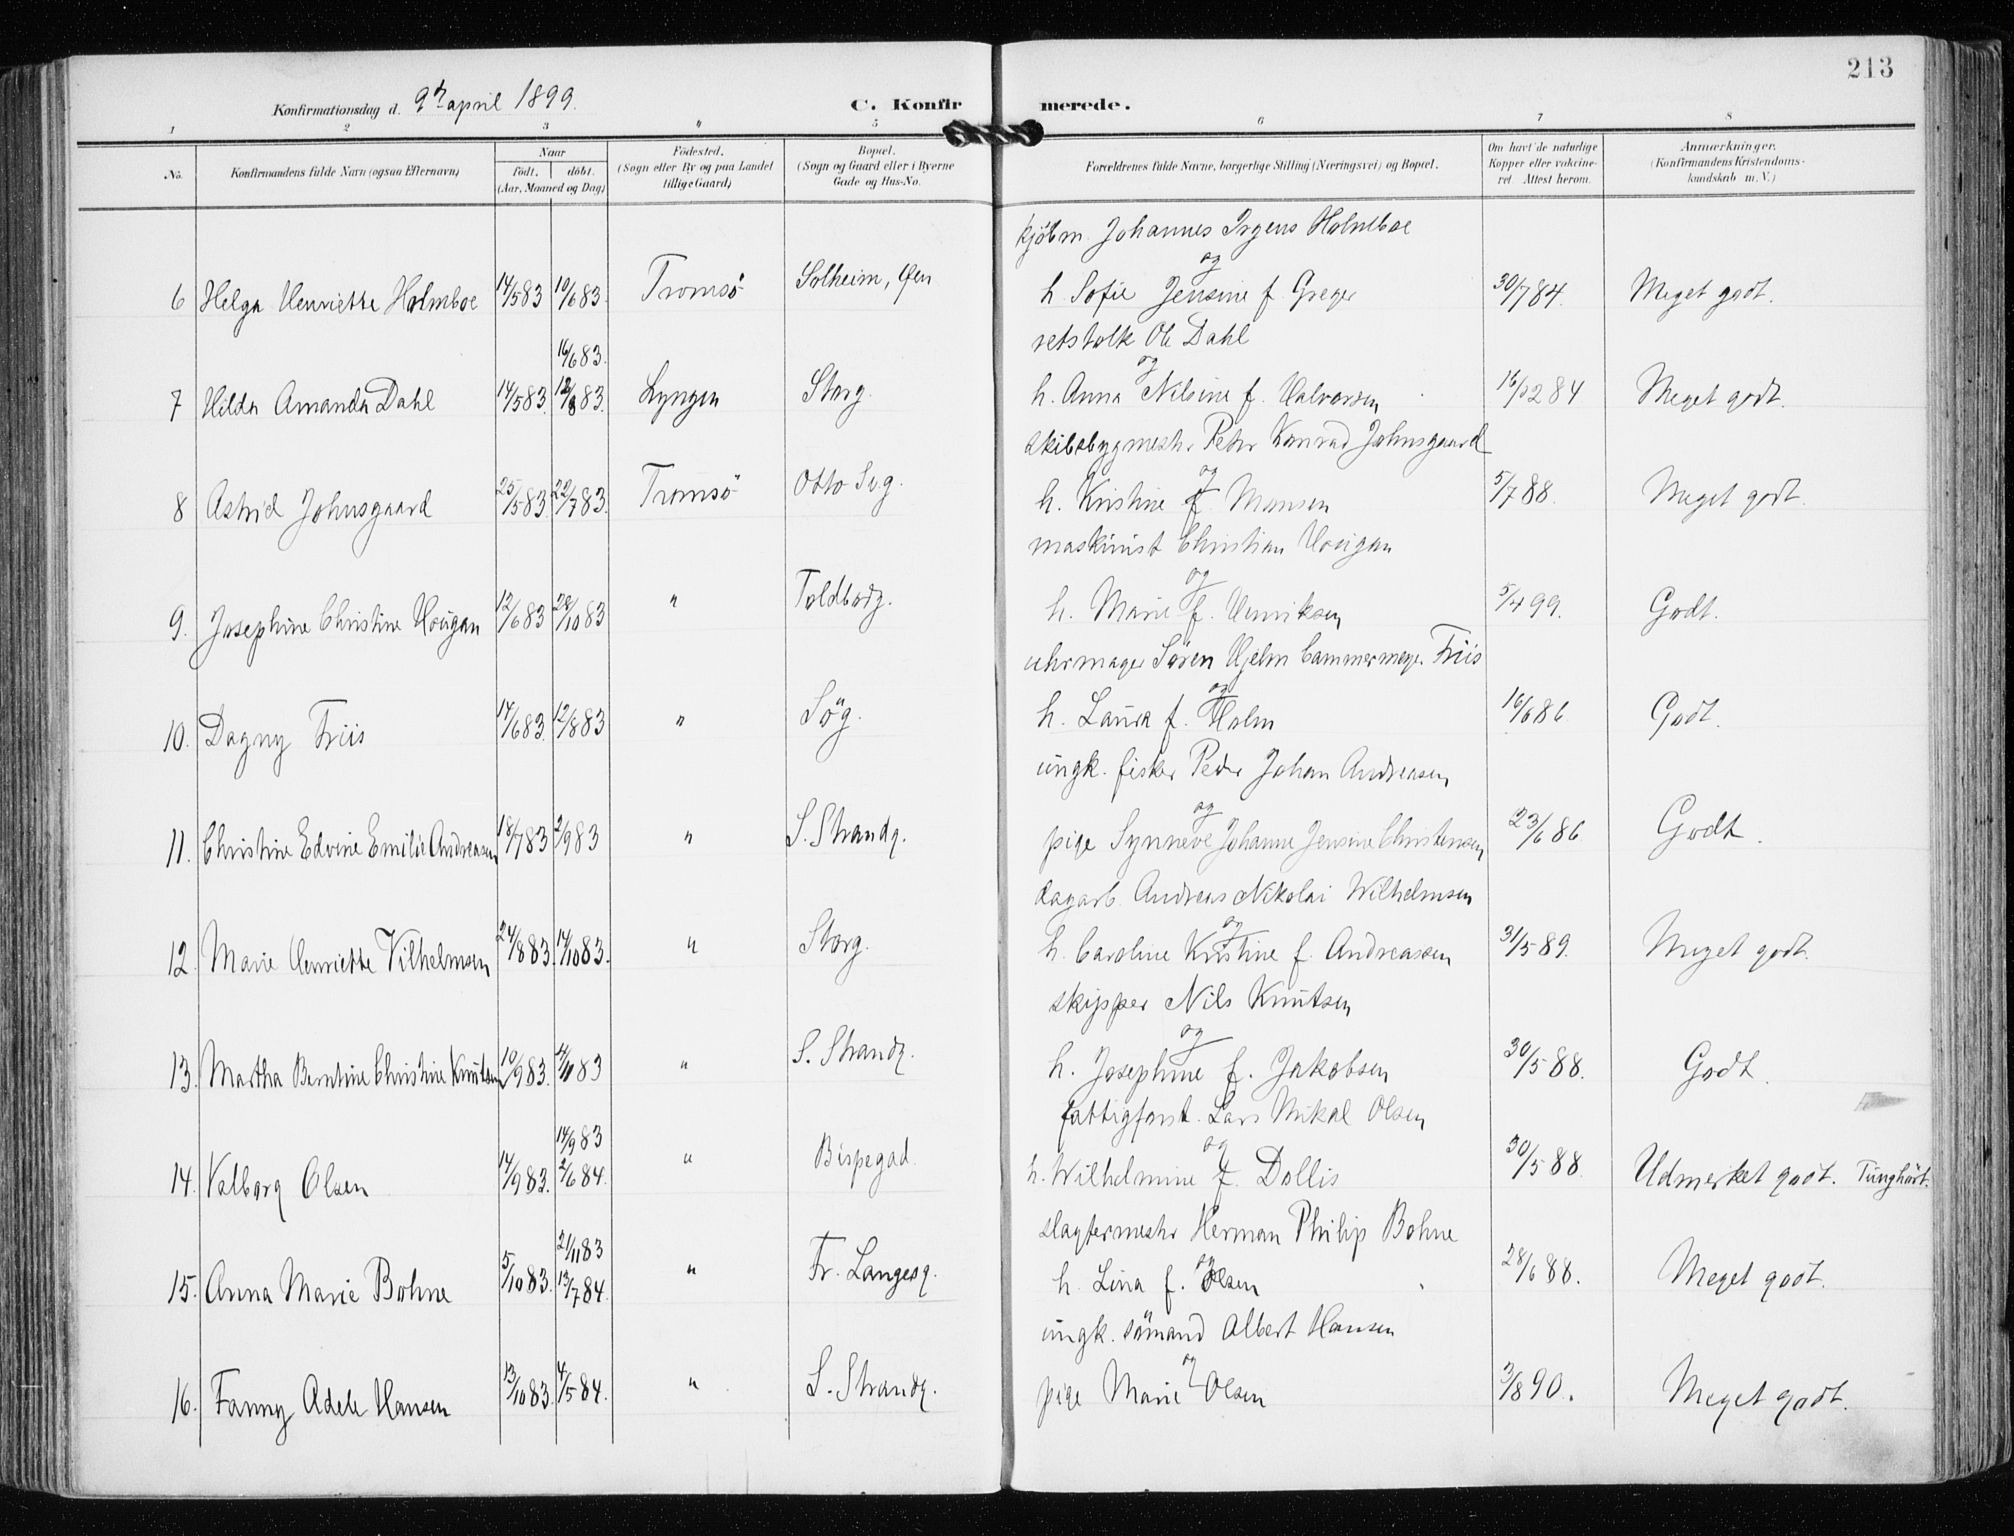 213
Konfirmationsdag d. 9de april 1899.
C. Konfirmerede.
1 2 3 " 5 6 7 8
No. Konfirmandens fulde Navn (ogsaa Efternavn) Naar født. døbt. (Aar, Maaned og Dag) Fødested. (Sogn eller By og paa Landet tillige Gaard) Bopæl. (Sogn og Gaard eller i Byerne Gade og Hus-No. Forældrenes fulde Navne, borgerlige Stilling (Næringsvei) og Bopæl. Om havt de naturlige Kopper eller vakcineret. Attest herom. Anmærkninger. (Konfirmandens Kristendomskundskab m. V.)
kjøbm. Johannes Irgens Holmboe
og
6 Helga Henriette Holmboe 14/5 83 10/6 83. Tromsö Solheim, Øen h. Sofie Jensine f. Greger 30/7 84. Meget godt.
16/6 83. retstolk Ole Dahl
og
7 Hilda Amanda Dahl 14/5 83. 12/8 83. Lyngen Storg. h. Anna Nilsine f. Halvorsen 16/12 84 Meget godt.
skibsbygmestr. Peter Konrad Johnsgaard
og
8 Astrid Johnsgaard 25/5 83. 22/7 83. Tromsö Otto Sv.g. h. Kristine f. Monsen 5/7 88. Meget godt.
maskinist Christian Hovigan
og
9. Josephine Christine Hovigan 12/6 83 28/10 83 " Toldbodg. h. Marie f. Henriksen 5/4 99. Godt.
uhrmager Sören Hjelm Cammermeyr. Friis
og
10. Dagny Friis 14/6 83. 12/8 83 " Sög. h. Laura f. Holm 16/6 86 Godt.
ungk. fisker Peder Johan Andreasen
og
11. Christine Edvine Emilie Andreasen 18/7 83 2/9 83 " S. Strandg. pige Synneve Johanne Jensine Christensen 23/6 86 Godt.
dagarb. Andreas Nikolai Wilhelmsen
og
12. Marie Henriette Vilhelmsen 24/8 83. 14/10 83. " Storg. h. Caroline Kristine f. Andreassen 31/5 89. Meget godt.
skipper Nils Knutsen
og
13. Martha Berntine Christine Knutsen 10/9 83. 4/11 83 " S. Strandg. h. Josephine f. Jakobsen 30/5 88. Godt.
14/9 83 fattigforst. Lars Mikal Olsen
og
14. Valborg Olsen 14/9 83. 2/6 84. " Bispegad. h. Wilhelmine f. Dollis 30/5 88. Udmerket godt. Tunghört.
21/11 83 slagtermestr Herman Philip Bohne
og
15. Anna Marie Bohne 5/10 83. 13/7 84. " Fr. Langesg. h. Lina f. Olsen 28/6 88. Meget godt.
ungk. sömand Albert Hansen
og
16. Fanny Adele Hansen 13/10 83. 4/5 84. " S. Strandg. pige Marie Olsen 3/8 90. Meget godt.